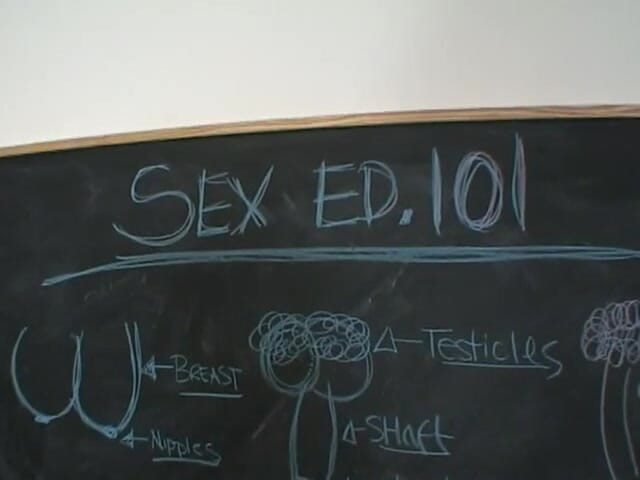 SEX ED. 101
BREAST
TESTICLES
NIPPLES
SHAFT